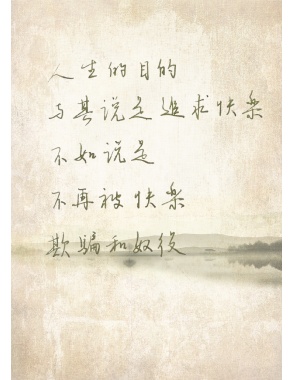 人生的目的
与其说是追求快樂
不如说是
不再被快樂
欺騙和奴役